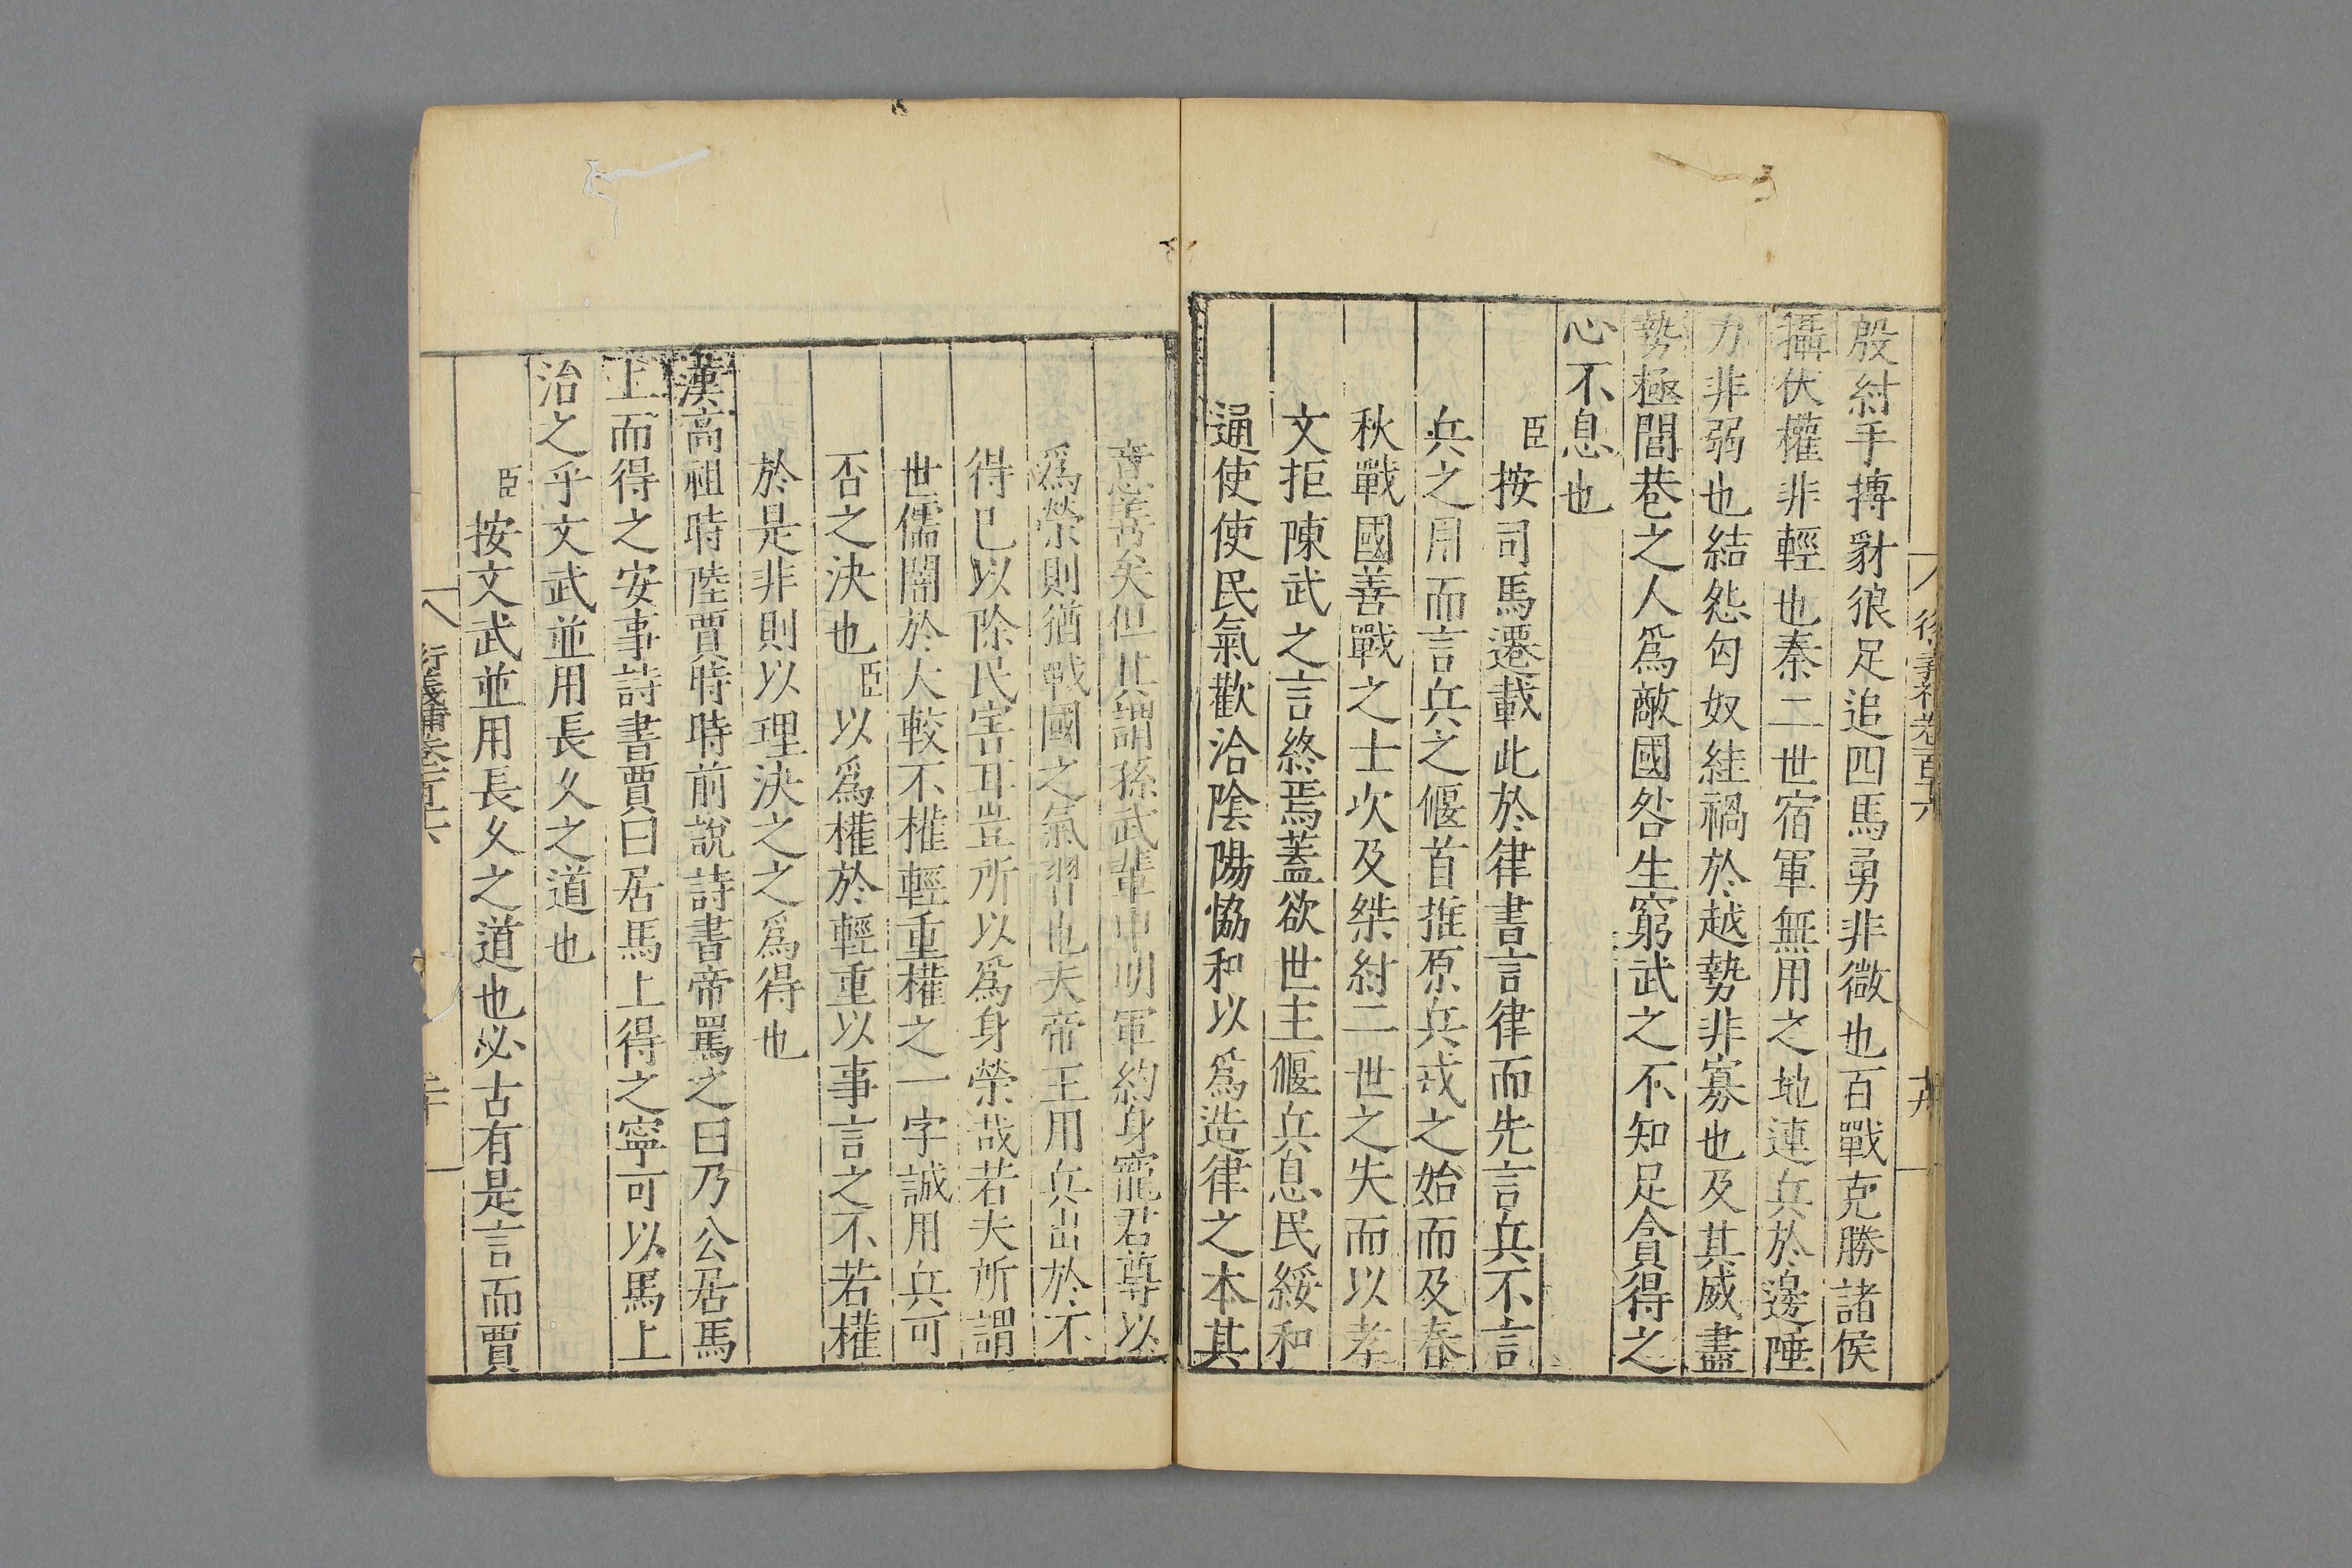 殷紂手搏豺狼足追四馬勇非微也百戰克勝諸侯
攝伏權非輕也秦二世宿軍無用之地連兵於邊陲
力非弱也結怨匈奴絓禍於越勢非寡也及其威盡
勢極閭巷之人爲敵國咎生窮武之不知足貪得之
心不息也
臣按司馬遷載此於律書言律而先言兵不言
兵之用而言兵之偃首推原兵戎之始而及春
秋戰國善戰之士次及桀紂二世之失而以孝
文拒陳武之言終焉蓋欲世主偃兵息民綏和
通使使民氣歡洽陰陽恊和以爲造律之本其
意善矣但其謂孫武輩申明軍約身寵君尊以
爲榮則猶戰國之氣習也夫帝王用兵出於不
得已以除民害耳豈所以爲身榮哉若夫所謂
世儒闇於大較不權輕重權之一字誠用兵可
否之決也臣以爲權於輕重以事言之不若權
於是非則以理決之之爲得也
漢高祖時陸賈時時前說詩書帝罵之曰乃公居馬
上而得之安事詩書賈曰居馬上得之寧可以馬上
治之乎文武並用長久之道也
臣按文武並用長久之道也必古有是言而賈
衍義補卷百十六
二十